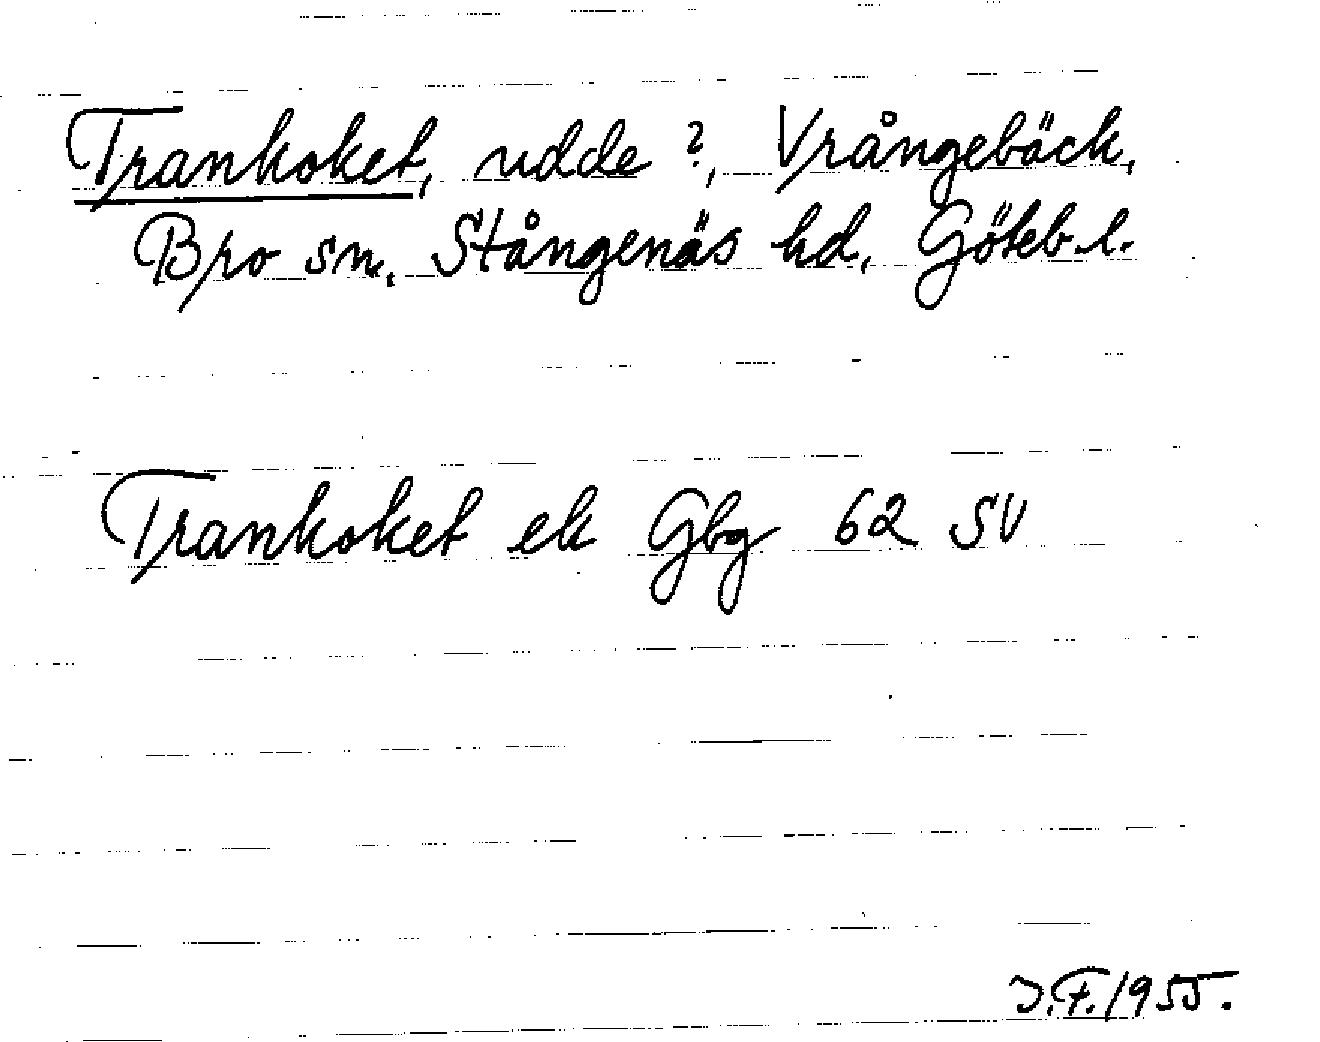 Trankoket, udde ?, Vrångebäck,
Bro sn, Stångenäs hd, Göteb. l.
Trankoket ek Gbg 62 SV
J.F. 1955.